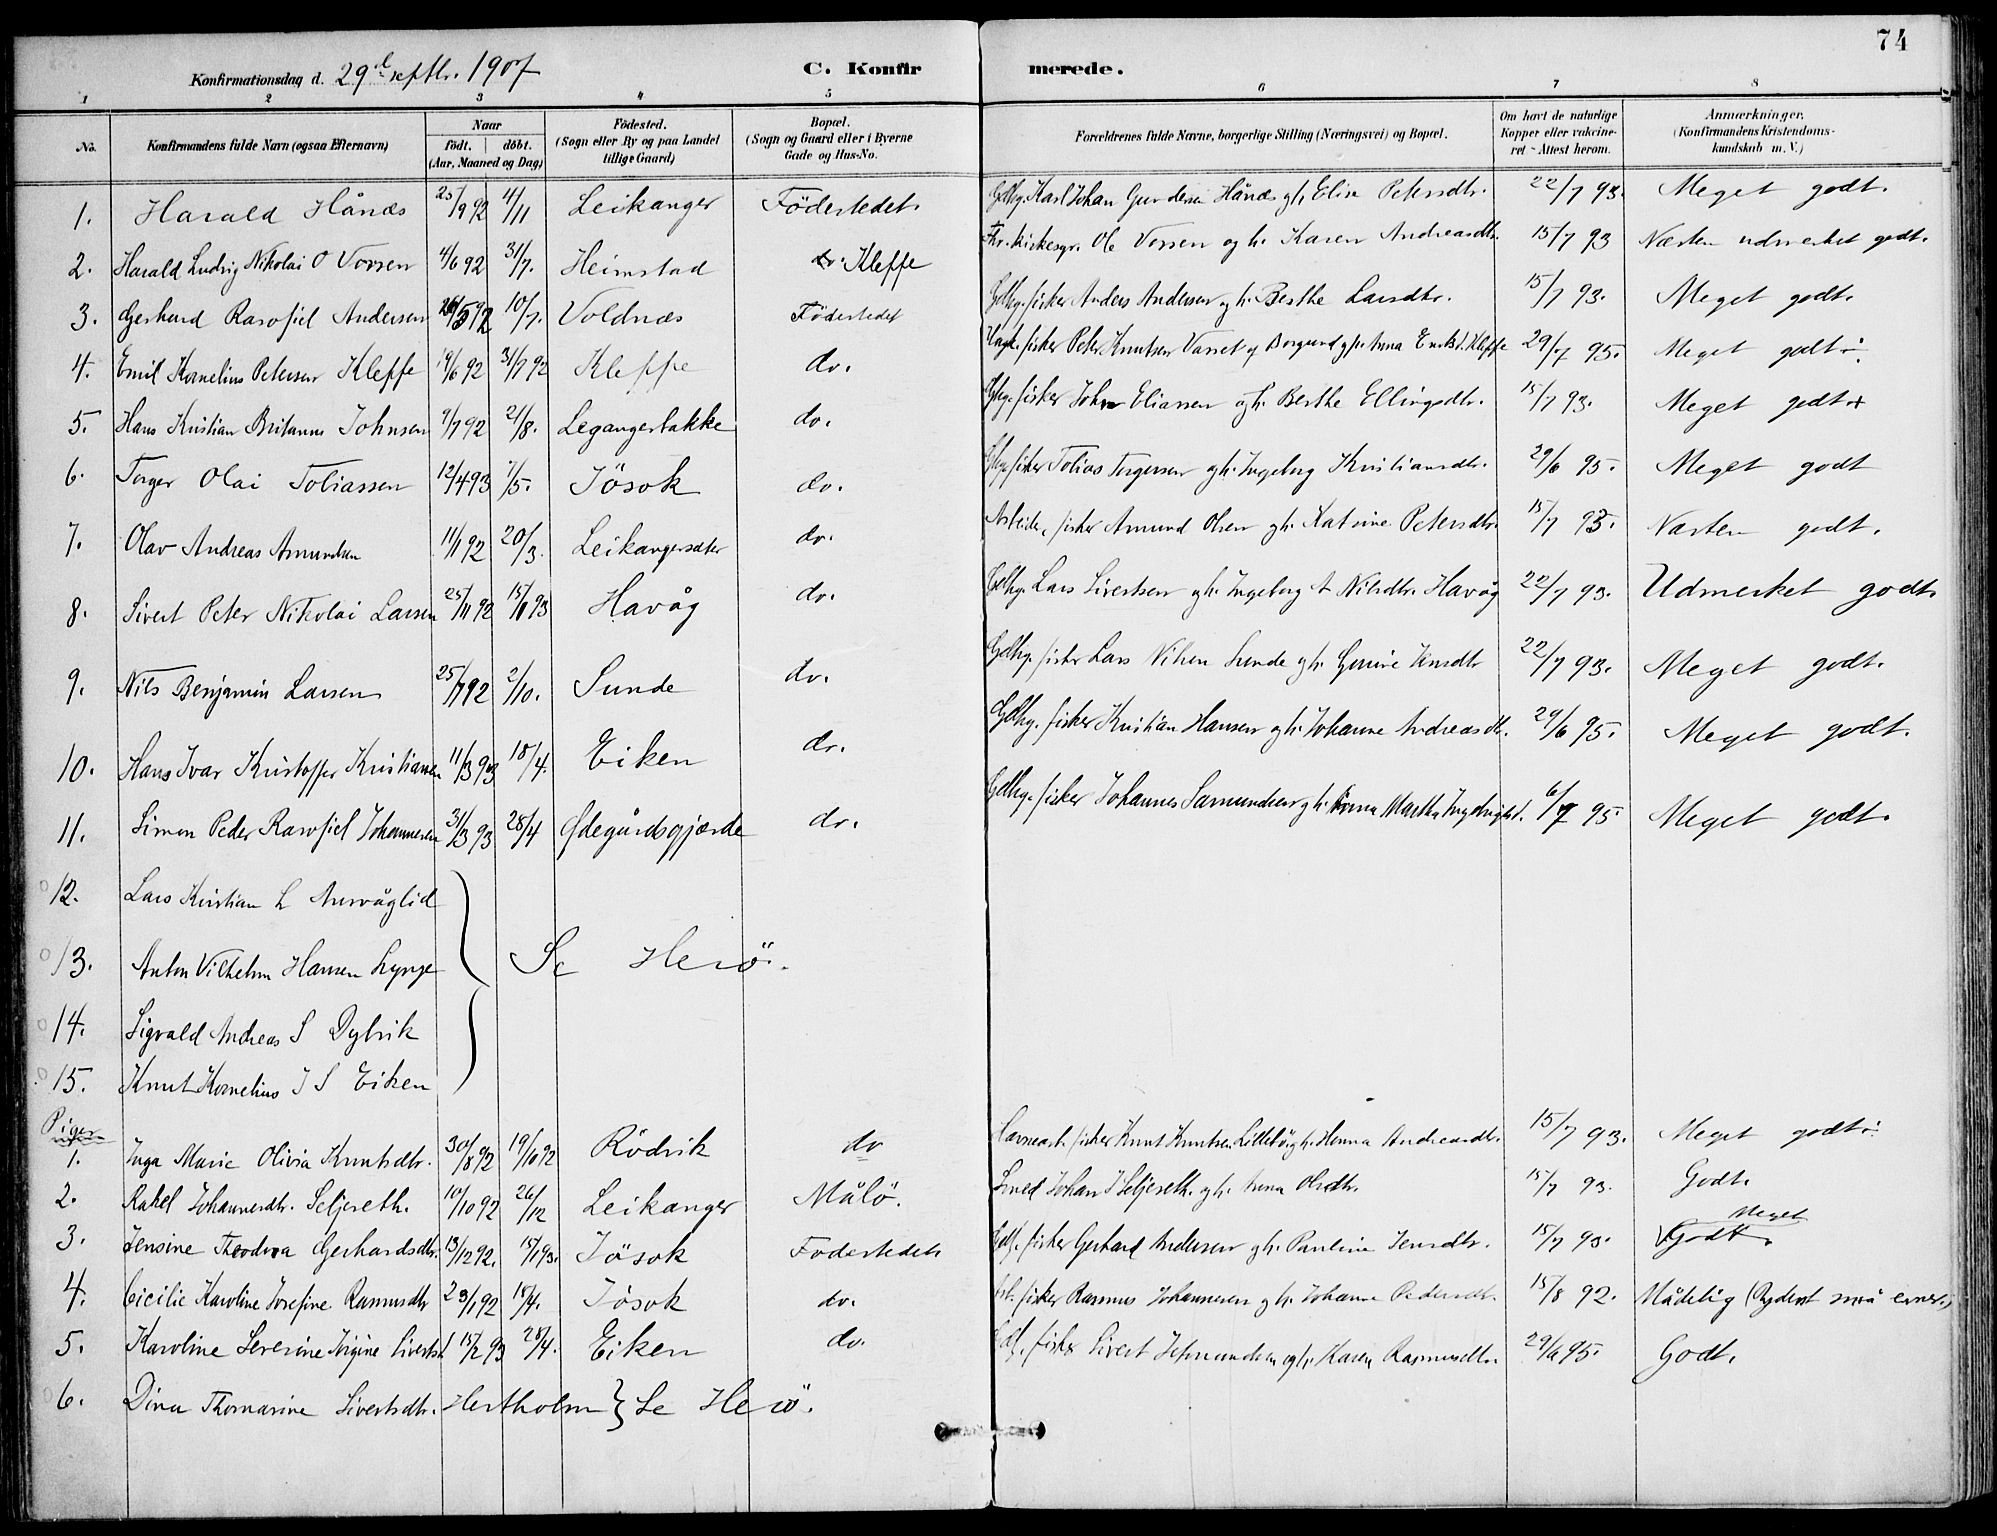 74
Konfirmationsdag d. 29de septbr. 1907 C. Konfirmerede.
1 2 3 4 5 6 7 8
No. Konfirmandens fulde Navn (ogsaa Efternavn) Naar født. døbt. (Aar, Maaned og Dag) Fødested. (Sogn eller By og paa Landet tillige Gaard) Bopæl. (Sogn og Gaard eller i Byerne Gade og Hus-No. Forældrenes fulde Navne, borgerlige Stilling (Næringsvei) og Bopæl. Om havt de naturlige Kopper eller vakcineret - Attest herom. Anmærkninger. (Konfirmandens Kristendomskundskab m. V.)
1. Harald Hånæs 25/9 92 4/11 Leikanger Födestedet. Karl Johan Gundersen Hånæs gh. Elise Petersdtr. 22/7 93. Meget godt.
2. Harald Ludvig Nikolai O Vorren 4/6 92 31/7. Heimstad Kleppe Kirkesgr. Ole Vorren og h. Karen Andreasdtr. 15/7 93 Næsten udmerket godt.
3. Gerhard Rasofiel Andersen 26/5 92 10/7. Voldnæs Födestedet Gdbg. fisker Anders Andersen gh. Berthe Larsdtr. 15/7 93. Meget godt.
4. Emil Kornelius Petersen Kleppe 19/6 92 31/7 92 Kleppe do. fisker Peter Knutsen Vasset af Borgund gh. Anna Kleppe 29/7 95. Meget godt.
5. Hans Kristian Britanus Johnsen 9/7 92 21/8. Legangerbakke do. Gbg. fisker John Eliassen gh. Berthe Ellingsdtr. 15/7 93. Meget godt
6. Torger Olai Tobiassen 12/4 93 7/5. Jösok do. Gbg. fisker Tobias Torgersen gh. Ingeborg Kristiansdtr. 29/6 95. Meget godt
7. Olav Andreas Amundsen 11/1 92 20/3. Leikangersæter do. Arbeider, fisker Amund Olsen gh. Katrine Petersdtr. 15/7 93. Næsten godt.
8. Sivert Peter Nikolai Larsen 25/11 92 15/1 93 Havåg do. Gdbg. Lars Sivertsen gh. Ingeborg A Nilsdtr. Havåg 22/7 93. Udmerket godt.
9. Nils Benjamin Larsen 25/7 92 2/10. Sunde do. Gdbg. fisker Lars Nilsen Sunde gh. Gurine Jensdtr 22/7 93. Meget godt.
10. Hans Ivar Kristoffer Kristiansen 11/3 93 18/4. Eiken do. Gdbg. fisker Kristian Hansen gh. Johanne Andreasdtr. 29/6 95. Meget godt.
11. Simon Peder Rasofiel Johannesen 31/3 93 28/4 Ødegårdsgjærde do. Gdbg. fisker Johannes Samundsen gh. Anna Martha 6/7 95. Meget godt.
12. Lars Kristian L
13. Anton Vilhelm Hansen Lynge Se Herö.
14. Sigvald Andreas S Dybvik
15. Knut Kornelius J S Eiken
Piger
1. Inga Marie Olivia Knutsdtr. 30/8 92 19/10 92 Rödvik do fisker Knut Knutsen Lillebö gh. Hanna Andreasdtr. 15/7 93. Meget godt.
2. Rakel Johannesdtr. Seljeseth. 10/10 92 26/12 Leikanger Målö. Smed Johan J Seljeseth. gh. Anna Olsdtr. 15/7 93. Godt.
3. Jensine Theodora Gerhardsdtr. 13/12 92. 15/1 93. Jösok Fodestedet. Gdbg. fisker Gerhard Andersen gh. Pauline Jensdtr. 15/7 93. Meget Godt.
4. Cicilie Karoline Josefine Rasmusdtr 23/1 92 18/4. Jösok do. fisker Rasmus Johannesen gh. Johanne Pedersdtr. 15/8 92. Mådelig (Ryderst små evner.)
5. Karoline Severine Jörgine Sivertsd 15/2 93 28/4. Eiken do. fisker Sivert gh. Karen Rasmusdtr. 29/6 95. Godt.
6. Dina Thomasine Sivertsdtr. Hestholm } Se Herö.